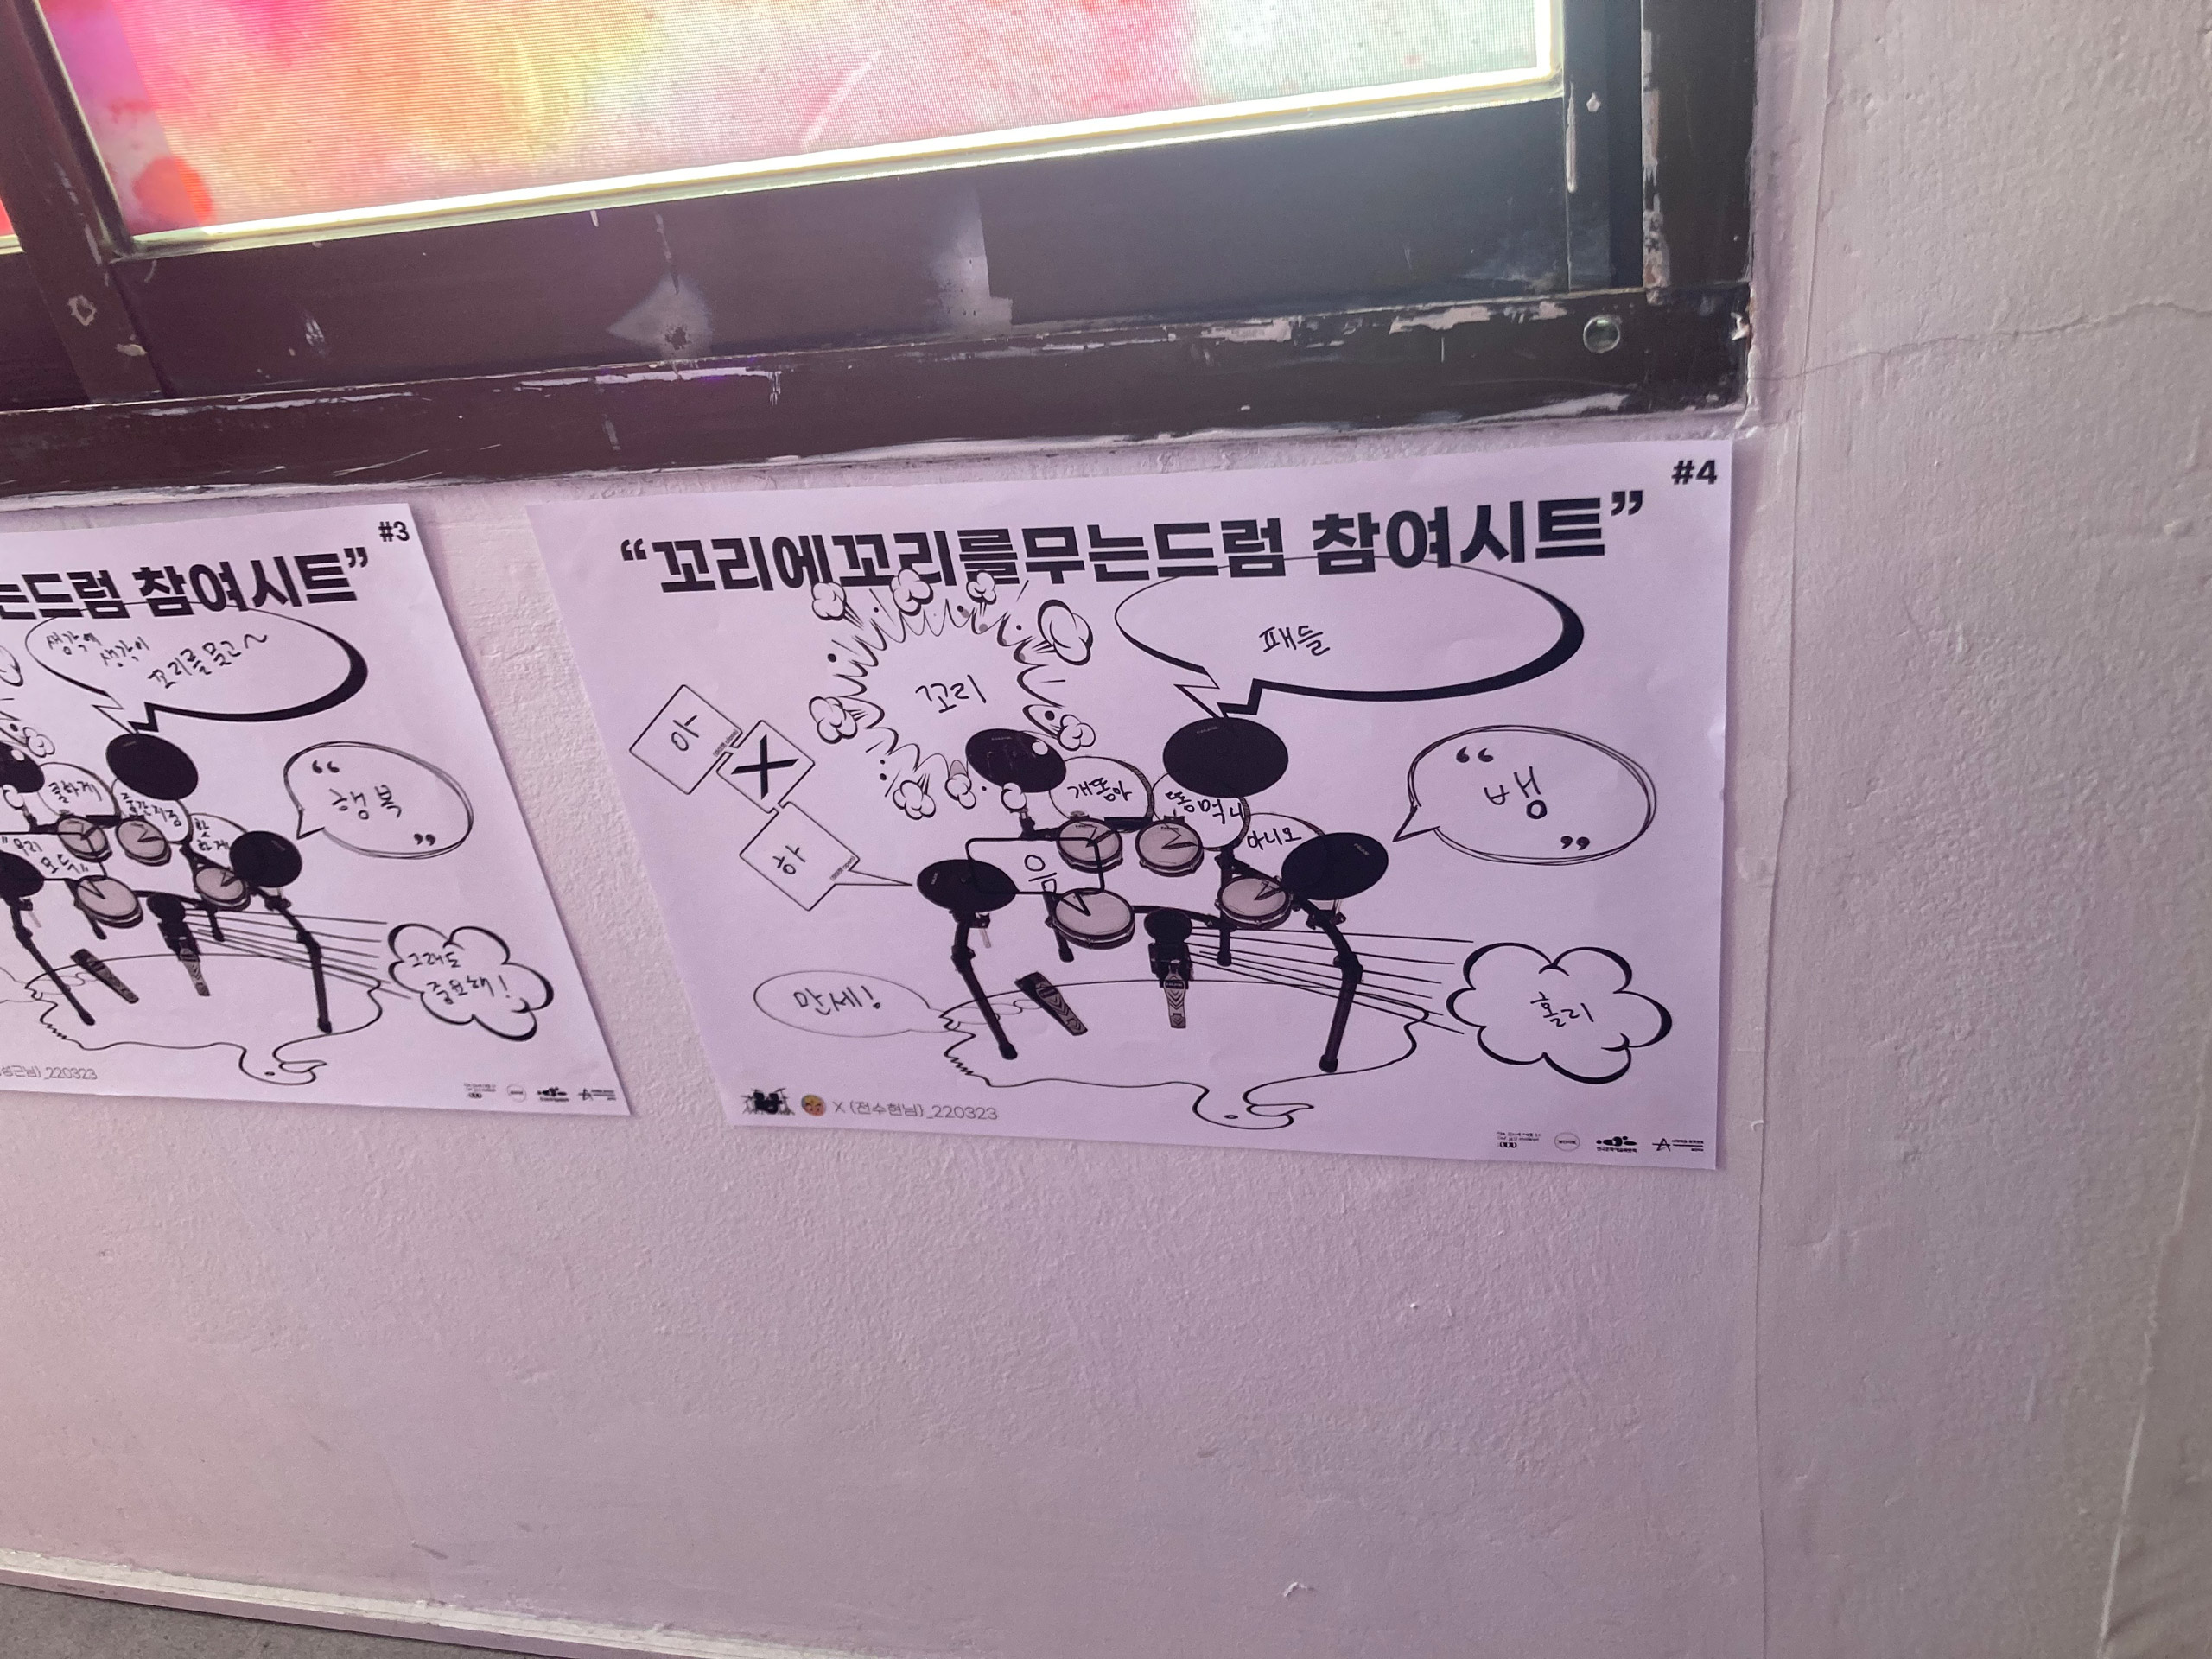 #3
는드럼 참여시트”
생각에
생각이
꼬리를 물고~
쿨하게
핫
하게
“우리
모두”
“행복”
그래도
중요해!
220323
#4
“꼬리에꼬리를무는드럼 참여시트”
꼬리
패들
아
X
하
개똥아
똥
아니오
응
“뱅”
만세!
홀리
X (전수현님)_220323